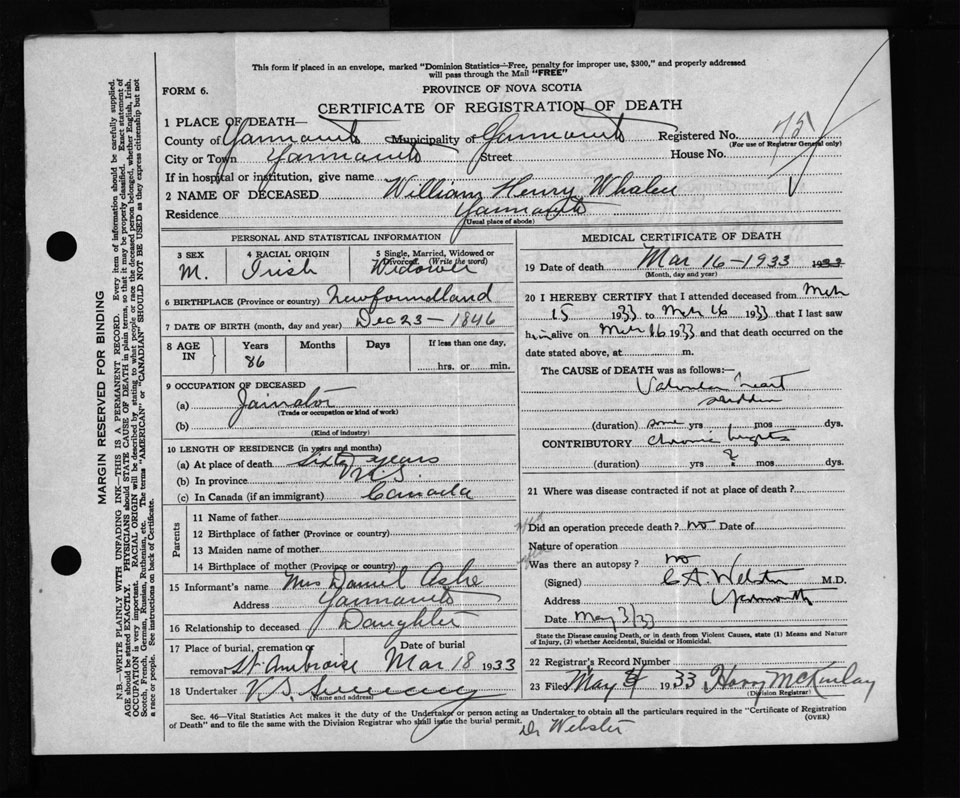 This form if placed in an envelope, marked "Dominion Statistics—Free, penalty for improper use, $300," and properly addressed
will pass through the Mail "FREE"
FORM 6.
PROVINCE OF NOVA SCOTIA
CERTIFICATE OF REGISTRATION OF DEATH
1 PLACE OF DEATH—
County of Yarmouth Municipality of Yarmouth Registered No. 75
(For use of Registrar General only)
City or Town Yarmouth Street House No.
If in hospital or institution, give name
2 NAME OF DECEASED William Henry Whalen
Residence Yarmouth
(Usual place of abode)
PERSONAL AND STATISTICAL INFORMATION
3 SEX 4 RACIAL ORIGIN 5 Single, Married, Widowed or
Divorced. (Write the word)
M. Irish Widower
6 BIRTHPLACE (Province or country) Newfoundland
7 DATE OF BIRTH (month, day and year) Dec 23 — 1846
8 AGE IN Years Months Days If less than one day,
86 hrs. or min.
9 OCCUPATION OF DECEASED
(a) Janitor
(Trade or occupation or kind of work)
(b)
(Kind of industry)
10 LENGTH OF RESIDENCE (in years and months)
(a) At place of death sixty years
(b) In province N.S.
(c) In Canada (if an immigrant) Canada
Parents
11 Name of father
12 Birthplace of father (Province or country)
13 Maiden name of mother
14 Birthplace of mother (Province or country)
15 Informant's name Mrs Daniel Ashe
Address Yarmouth
16 Relationship to deceased Daughter
17 Place of burial, cremation or Date of burial
removal St. Ambroise Mar 18 1933
18 Undertaker V.S. Sweeney
(Name and address)
MEDICAL CERTIFICATE OF DEATH
19 Date of death Mar 16 — 1933 1933
(Month, day and year)
20 I HEREBY CERTIFY that I attended deceased from Mch
15 1933 to Mch 16 1933 that I last saw
him alive on Mch 16 1933 and that death occurred on the
date stated above, at m.
The CAUSE of DEATH was as follows:—
Valvular heart
sudden
(duration) some yrs mos dys.
CONTRIBUTORY chronic
(duration) yrs ? mos dys.
21 Where was disease contracted if not at place of death?
Did an operation precede death? no Date of
Nature of operation
Was there an autopsy? no
(Signed) C.A. Webster M.D.
Address Yarmouth
Date May 3/33
State the Disease causing Death, or in death from Violent Causes, state (1) Means and Nature
of Injury, (2) whether Accidental, Suicidal or Homicidal.
22 Registrar's Record Number
23 Filed May 1933 Harry McKinlay
(Division Registrar)
Sec. 46—Vital Statistics Act makes it the duty of the Undertaker or person acting as Undertaker to obtain all the particulars required in the "Certificate of Registration
of Death" and to file the same with the Division Registrar who shall issue the burial permit.
(OVER)
Dr Webster
MARGIN RESERVED FOR BINDING
N.B.—WRITE PLAINLY WITH UNFADING INK—THIS IS A PERMANENT RECORD. Every item of information should be carefully supplied.
AGE should be stated EXACTLY. PHYSICIANS should STATE CAUSE OF DEATH in plain terms, so that it may be properly classified. Exact statement of
OCCUPATION is very important. RACIAL ORIGIN will be described by stating to what people or race the deceased person belonged, whether English, Irish,
Scotch, French, German, Russian, Ruthenian, etc. The terms "AMERICAN" or "CANADIAN" SHOULD NOT BE USED as they express citizenship but not
a race or people. See instructions on back of Certificate.